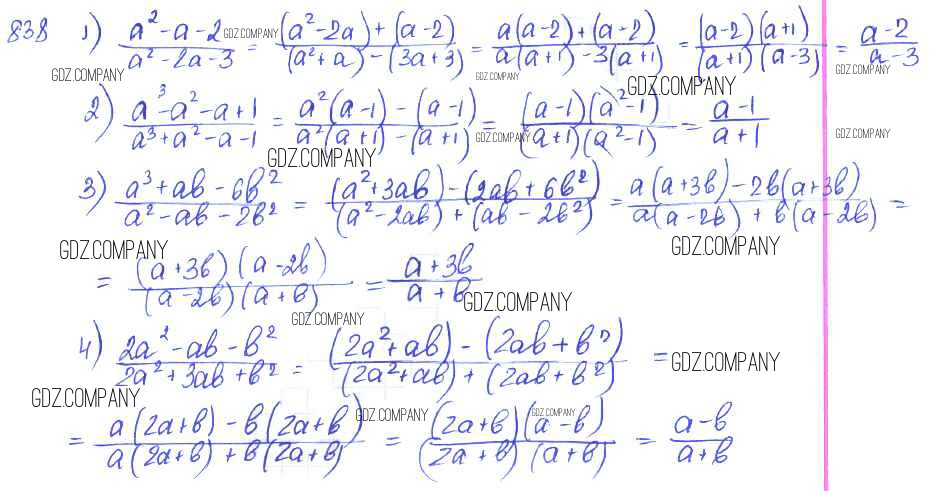 838 1) (a² - a - 2)/(a² - 2a - 3) = ((a² - 2a) + (a - 2))/((a² + a) - (3a + 3)) = (a(a - 2) + (a - 2))/(a(a + 1) - 3(a + 1)) = ((a - 2)(a + 1))/((a + 1)(a - 3)) = (a - 2)/(a - 3)
GDZ.COMPANY
GDZ.COMPANY GDZ.COMPANY GDZ.COMPANY
GDZ.COMPANY
2) (a³ - a² - a + 1)/(a³ + a² - a - 1) = (a²(a - 1) - (a - 1))/(a²(a + 1) - (a + 1)) = ((a - 1)(a² - 1))/((a + 1)(a² - 1)) = (a - 1)/(a + 1)
GDZ.COMPANY GDZ.COMPANY
GDZ.COMPANY
3) (a³ + ab - 6b²)/(a² - ab - 2b²) = ((a² + 3ab) - (2ab + 6b²))/((a² - 2ab) + (ab - 2b²)) = (a(a + 3b) - 2b(a + 3b))/(a(a - 2b) + b(a - 2b)) =
GDZ.COMPANY GDZ.COMPANY
= ((a + 3b)(a - 2b))/((a - 2b)(a + b)) = (a + 3b)/(a + b)
GDZ.COMPANY
GDZ.COMPANY
4) (2a² - ab - b²)/(2a² + 3ab + b²) = ((2a² + ab) - (2ab + b²))/((2a² + ab) + (2ab + b²)) =
GDZ.COMPANY
GDZ.COMPANY
GDZ.COMPANY GDZ.COMPANY
= (a(2a + b) - b(2a + b))/(a(2a + b) + b(2a + b)) = ((2a + b)(a - b))/((2a + b)(a + b)) = (a - b)/(a + b)